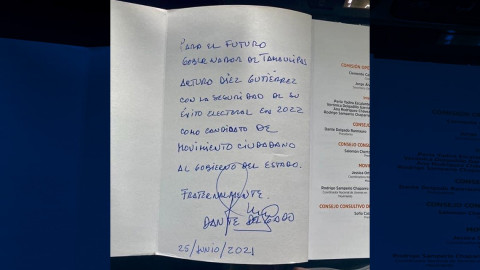 PARA EL FUTURO
GOBERNADOR DE TAMAULIPAS
ARTURO DÍEZ GUTIÉRREZ
CON LA SEGURIDAD DE SU
ÉXITO ELECTORAL EN 2022
COMO CANDIDATO DE
MOVIMIENTO CIUDADANO
AL GOBIERNO DEL ESTADO.
FRATERNALMENTE.
DANTE DELGADO
25/JUNIO/2021
COMISIÓN
CONSEJO
Dante Delgado
CONSEJO
Salomón
Rodrigo Samperio Chaparro
CONSEJO CONSULTIVO